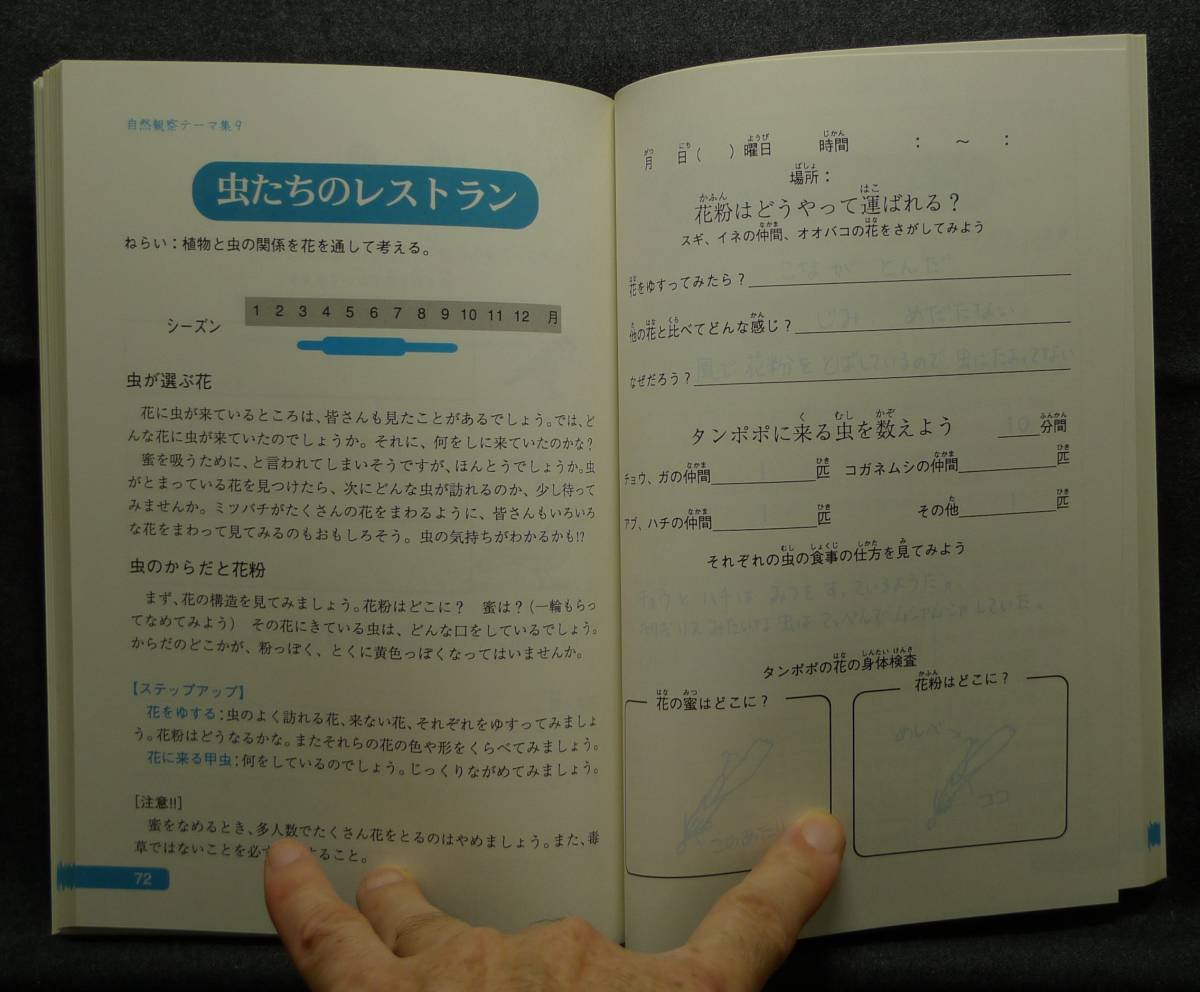 自然観察テーマ集9
虫たちのレストラン
ねらい：植物と虫の関係を花を通して考える。
シーズン
1 2 3 4 5 6 7 8 9 10 11 12 月
虫が選ぶ花
花に虫が来ているところは、皆さんも見たことがあるでしょう。では、ど
んな花に虫が来ていたのでしょうか。それに、何をしに来ていたのかな？
蜜を吸うために、と言われてしまいそうですが、ほんとうでしょうか。虫
がとまっている花を見つけたら、次にどんな虫が訪れるのか、少し待って
みませんか。ミツバチがたくさんの花をまわるように、皆さんもいろいろ
な花をまわって見てみるのもおもしろそう。虫の気持ちがわかるかも!?
虫のからだと花粉
まず、花の構造を見てみましょう。花粉はどこに？　蜜は？（一輪もらっ
てなめてみよう）　その花にきている虫は、どんな口をしているでしょう。
からだのどこかが、粉っぽく、とくに黄色っぽくなってはいませんか。
【ステップアップ】
花をゆする：虫のよく訪れる花、来ない花、それぞれをゆすってみましょ
う。花粉はどうなるかな。またそれらの花の色や形をくらべてみましょう。
花に来る甲虫：何をしているのでしょう。じっくりながめてみましょう。
［注意!!］
蜜をなめるとき、多人数でたくさん花をとるのはやめましょう。また、毒
草ではないことを必ず すること。
72
月 日（ ）曜日 時間 ： ～ ：
場所：
花粉はどうやって運ばれる？
スギ、イネの仲間、オオバコの花をさがしてみよう
花をゆすってみたら？ こなが とんだ
他の花と比べてどんな感じ？ じみ めだたない
なぜだろう？ 風で花粉をとばしているので 虫にたよってない
タンポポに来る虫を数えよう 10 分間
チョウ、ガの仲間 1 匹 コガネムシの仲間 匹
アブ、ハチの仲間 1 匹 その他 1 匹
それぞれの虫の食事の仕方を見てみよう
チョウとハチは みつを すっているようだ。
キリギリスみたいな虫は
タンポポの花の身体検査
花の蜜はどこに？
花粉はどこに？
めしべ
ココ
このあたり